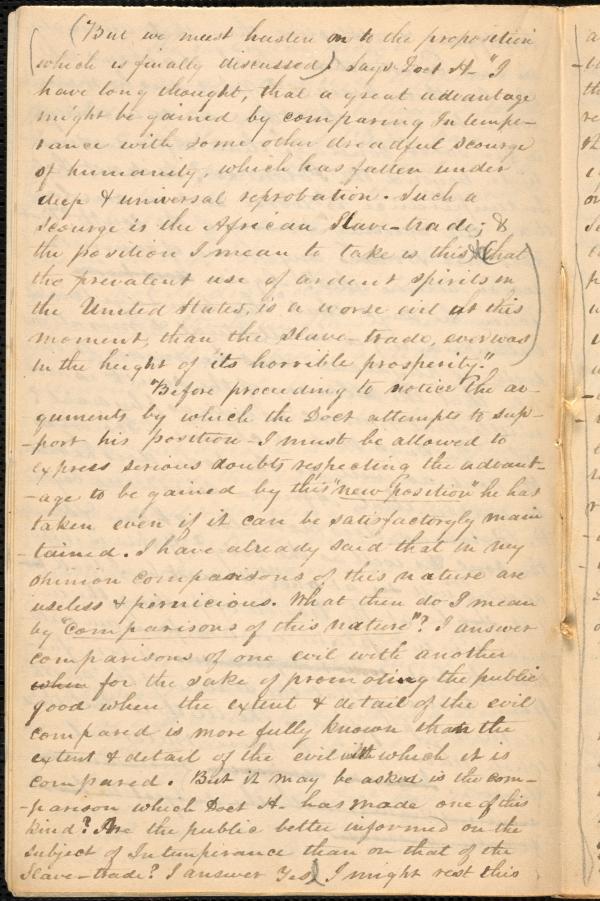 (But we must hasten on to the proposition
(which is finally discussed) says Doct H- "I
have long thought, that a great advantage
might be gained by comparing Intempe-
rance with some other dreadful scourge
of humanity, which has fallen under
deep & universal reprobation. Such a
scourge is the African Slave-trade; &
the position I mean to take is this, (that
the prevalent use of ardent spirits in
the United States, is a worse evil at this
moment, than the slave-trade, ever was
in the height of its horrible prosperity."
Before proceeding to notice the ar-
guments by which the Doct attempts to sup-
-port his position - I must be allowed to
express serious doubts respecting the advant-
-age to be gained by this "new position" he has
taken even if it can be satisfactorgly main
-tained. I have already said that in my
opinion comparisons of this nature are
useless & pernicious. What then do I mean
by "comparisons of this nature"? I answer
comparisons of one evil with another
when for the sake of promoting the public
good when the extent & detail of the evil
compared is more fully known than the
extent & detail of the evil with which it is
compared. But it may be asked is the com-
-parison which Doct H- has made one of this
kind? Are the public better informed on the
subject of Intemperance than on that of the
Slave-trade? I answer Yes) I might rest this